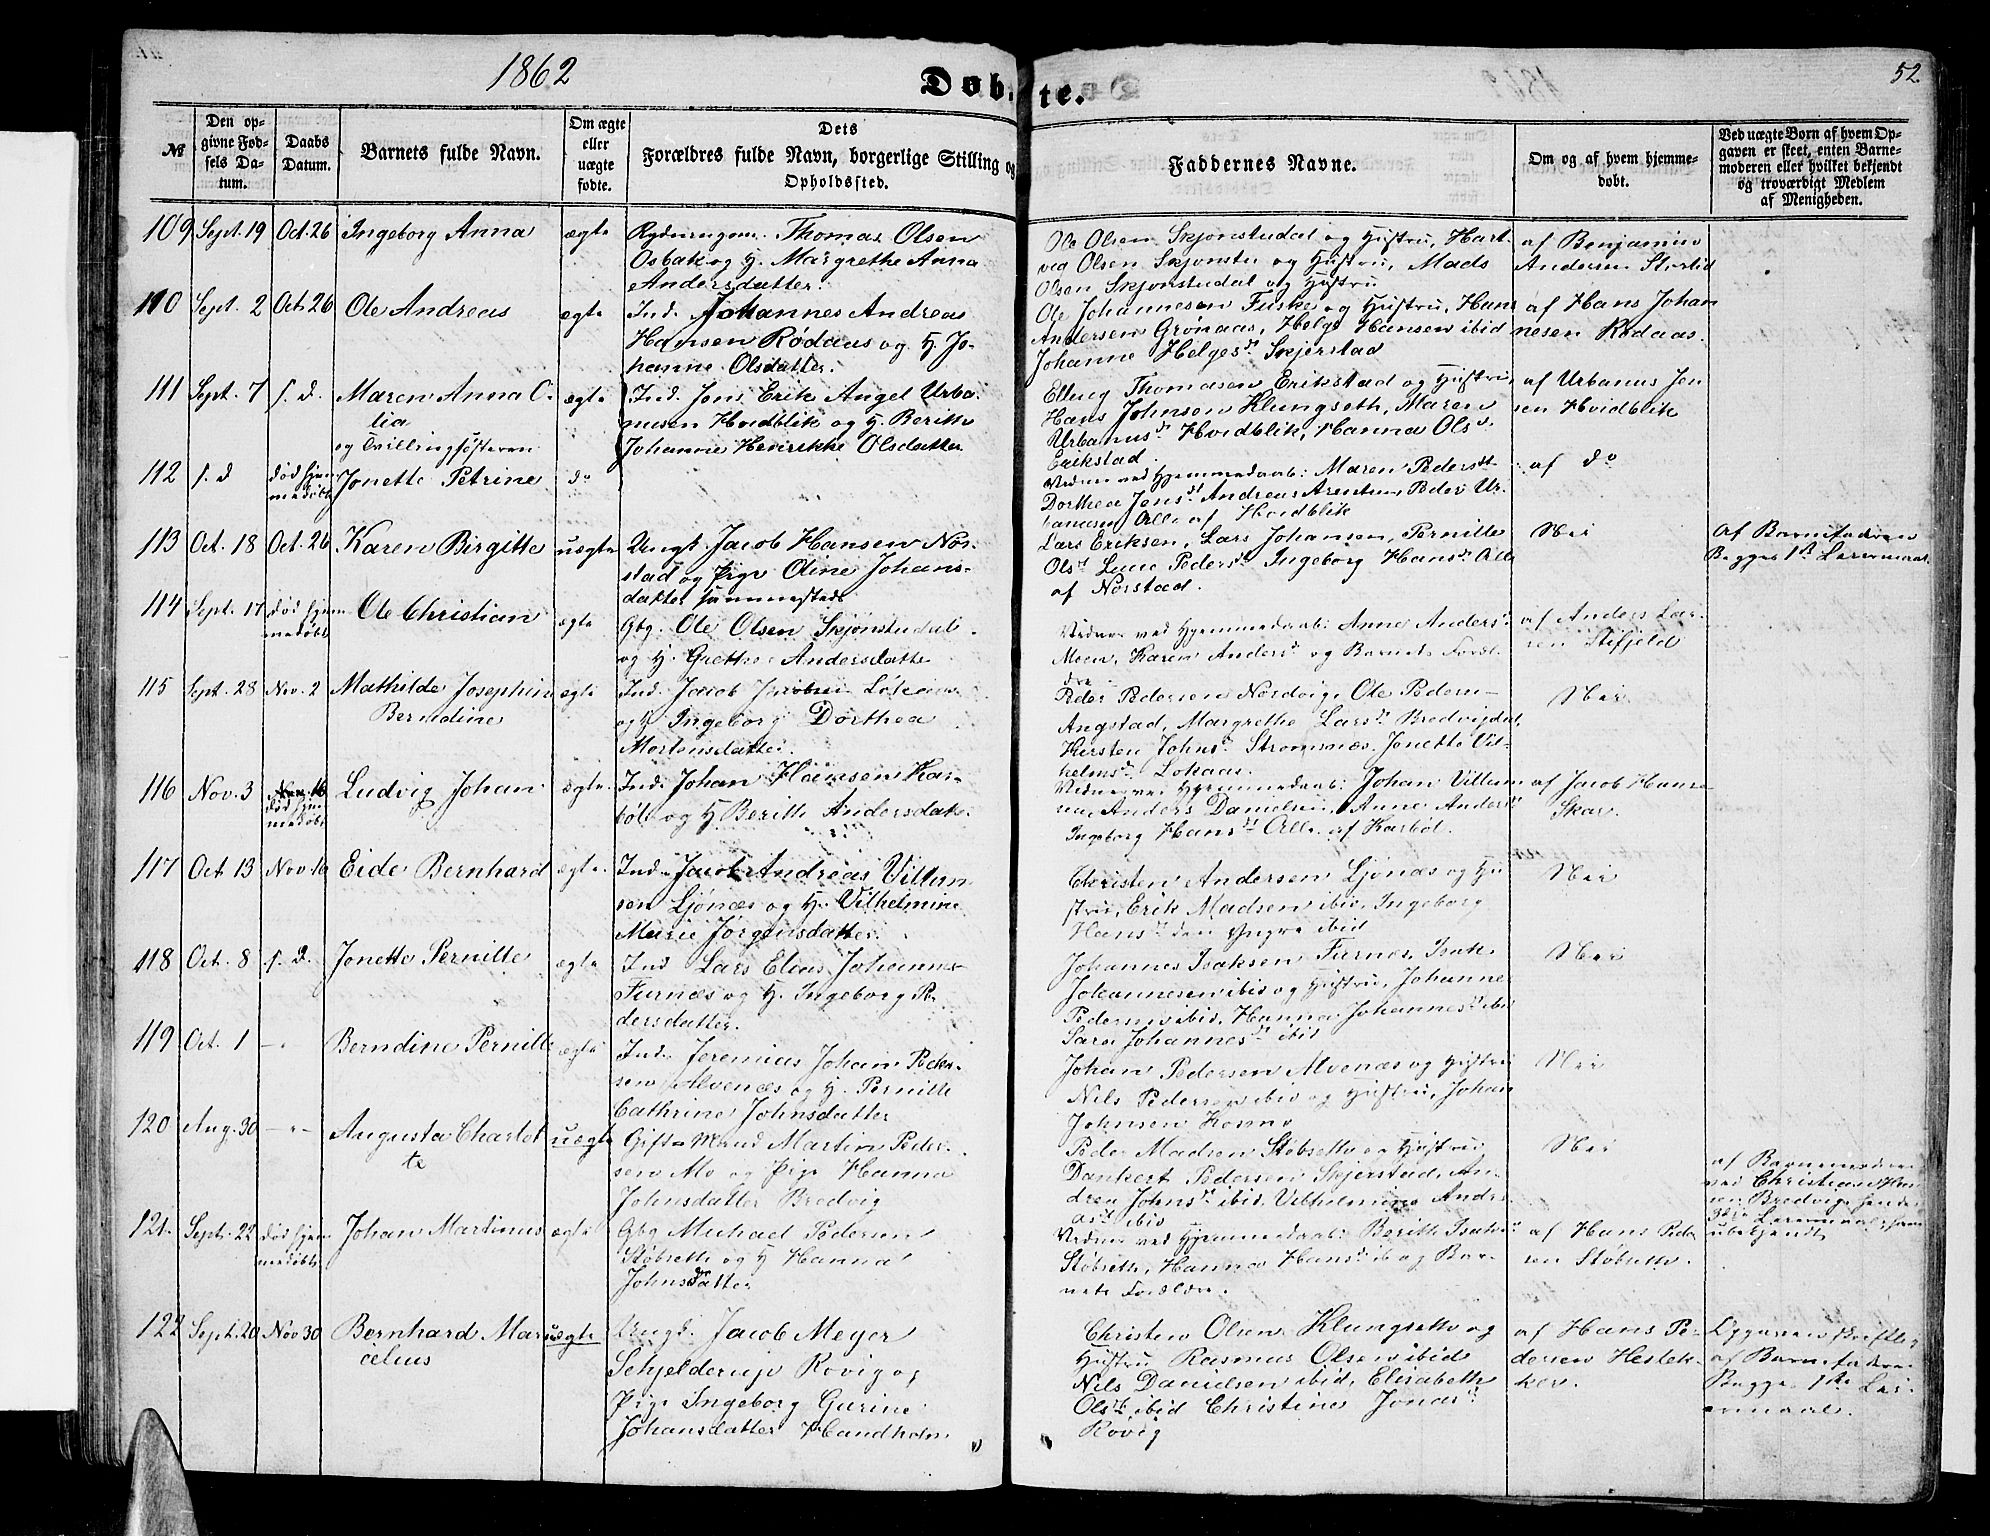 1862
Døbte.
52.
№
Den op-
givne Fød-
sels Da-
tum.
Daabs
Datum.
Barnets fulde Navn.
Om ægte
eller
uægte
fødte.
Dets
Forældres fulde Navn, borgerlige Stilling og
Opholdssted.
Faddernes Navne.
Om og af hvem hjemme-
døbt.
Ved uægte Børn af hvem Op-
gaven er skeet, enten Barne-
moderen eller hvilket bekjendt
og troværdigt Medlem
af Menigheden.
109 Sept. 19 Oct. 26 Ingeborg Anna ægte
Thomas Olsen
Osbak og H. Margrethe Anna
Andersdatter.
Ole Olsen Skjønstudal og Hustru, Hart-
vig Olsen Skjønstu og Hustru, Mads
Olsen Skjønstudal og Hustru
af Benjamin
Andersen
110 Sept. 2 Oct. 26 Ole Andreas ægte
Ind. Johannes Andreas
Hansen Rødaas og H. Jo-
hanne Olsdatter.
Ole Johannesen Fuske og Hustru, Hans
Andersen Grønaas, Helge Hansen ibid
Johanne Helgesd. Skjerstad
af Hans Johan
nesen Rødaas.
111 Sept. 7 s. d. Maren Anna O-
lia
og Tvillingsøsteren
ægte
Ind. Jens Erik Angel Urba-
nusen Hvidblik og H. Berith
Johanne Henrikke Olsdatter
Elling Thomasen Erikstad og Hustru,
Hans Johnsen Klungseth, Maren
Urbanusd. Hvidblik, Hanna Olsd.
Erikstad.
af Urbanus Jen
sen Hvidblik
112 s. d død hjem
medøbt Jonette Petrine do
Vidner ved Hjemmedaab: Maren Pedersd.
Dorthea Jensd. Andreas Arentsen, Peder Ur-
banusen Alle af Hvidblik
af do
113 Oct. 18 Oct. 26 Karen Birgitte uægte
Ungk. Jacob Hansen Nor-
stad og Pige Oline Johans-
datter sammesteds
Lars Eriksen, Lars Johansen, Pernille
Olsd. Lene Pedersd. Ingeborg Hansd. Alle
af Norstad.
Nei
af Barnefaderen
Begges 1ste Leiermaal.
114 Sept. 17 død hjem
medøbt Ole Christian ægte
Gbg. Ole Olsen Skjønstudal
og H. Grethe Andersdatter
Vidner ved Hjemmedaab: Anne Andersd.
Moen, Karen Andersd. og Barnets Foræl-
dre
af Anders Lar-
sen Stifjeld
115 Sept. 28 Nov. 2 Mathilde Josephine
Berndine ægte
Ind. Jacob Jacobsen Løkaas
og H Ingeborg Dorthea
Mortensdatter.
Peder Pedersen Nordvig, Ole Peders-
Angstad, Margrethe Larsd. Bredvigdal,
Kirsten Johnsd. Strømsnæs, Jonette Vil-
helmsd. Løkaas.
Nei.
116 Nov. 3 Nov. 16
død hjem
medøbt Ludvig Johan ægte
Ind. Johan Hansen Kar-
bøl og H Berith Andersdat.
Vidner ved Hjemmedaab: Johan Villum
sen, Anders Danielsen, Anne Andersd.
Ingeborg Hansd. Alle af Karbøl.
af Jacob Hanse
Skar.
117 Oct. 13 Nov. 16 Eide Bernhard ægte
Ind. Jacob Andreas Villum
sen Ljønæs og H. Vilhelmine
Marie Jørgensdatter.
Christen Andersen Ljønæs og Hu
stru, Erik Madsen ibid, Ingeborg
Hansd. den Yngre ibid
Nei
118 Oct. 8 s. D. Jonette Pernille ægte
Ind Lars Elias Johannes-
Furnæs og H. Ingeborg Pe-
dersdatter.
Johannes Isaksen Furnæs, Isak
Johannesen ibid og Hustru, Johanne
Pedersen ibid, Hanna Johannesd. ibid
Sara Johannesd. ibid
Nei
119 Oct. 1 — " Berndine Pernille ægte
Ind. Jeremias Johan Peder-
sen Alvenæs og H. Pernille
Cathrine Johnsdatter
Johan Pedersen Alvenæs og Hustru
Nils Pedersen ibid og Hustru, Johan
Johnsen
Nei
120 Aug. 30 — " — Augusta Charlot
te uægte
Gift Mand Martin Peder-
sen Mo og Pige Hanna
Johnsdatter Bredvig
Peder Madsen Støbseth og Hustru
Dankert Pedersen Skjerstad, An-
drea Johnsd. ibid, Vilhelmine Andre
asd. ibid
Nei
af Barnemoderen
ved Christian Han
sen Bredvig, hendes
3die Leiermaal, hans
ubekjendt
121. Sept. 22 død hjem
medøbt Johan Martinus ægte
Gbg Michael Pedersen
Støbseth og H Hanna
Johnsdatter
Vidner ved Hjemmedaab: Berith Isaksd.
Støbseth, Hanna Hansd. ib og Bar-
nets Forældre.
af Hans Peder
sen Støbseth.
122 Sept. 20 Nov 30 Bernhard Mar
celius uægte
Ungk. Jacob Meyer
Schjelderup Rovig og
Pige Ingeborg Gurine
Johansdatter Sandholm
Christen Olsen Klungseth og
Hustru Rasmus Olsen ibid
Nils Danielsen ibid, Elisabeth
Olsd. ibid Christine Jonasd.
Rovig
af Hans Pe-
dersen Hestek-
ker.
Opgaven skriftlig
af Barnefaderen
Begges 1ste Lei-
ermaal.